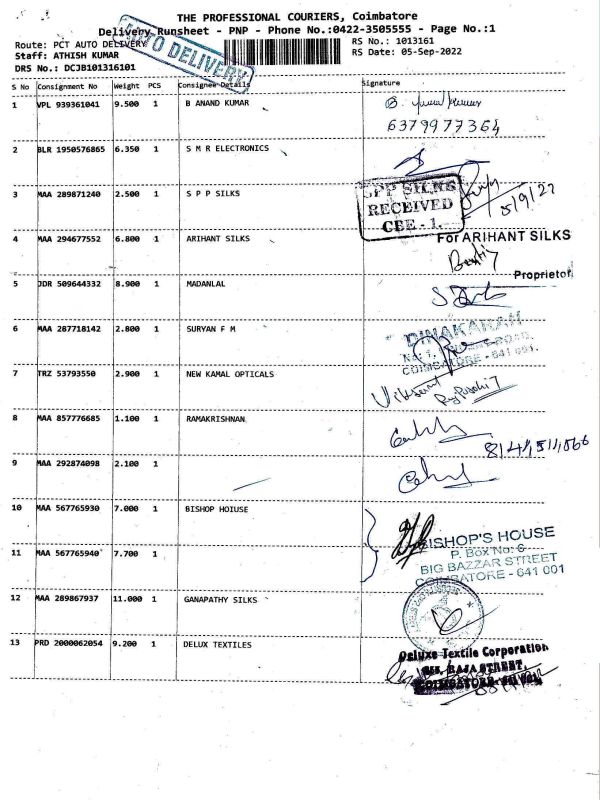 THE PROFESSIONAL COURIERS, Coimbatore
Delivery Runsheet - PNP - Phone No.:0422-3505555 - Page No.:1
Route: PCT AUTO DELIVERY
RS No.: 1013161
Staff: ATHISH KUMAR
RS Date: 05-Sep-2022
DRS No.: DCJB101316101
AUTO DELIVERY
S No Consignment No Weight PCS Consignee Details Signature
1 VPL 939361041 9.500 1 B ANAND KUMAR
6379977364
2 BLR 1950576865 6.350 1 S M R ELECTRONICS
3 MAA 289871240 2.500 1 S P P SILKS
SPP SILKS
RECEIVED
CBE - 1.
5/9/22
4 MAA 294677552 6.800 1 ARIHANT SILKS
For ARIHANT SILKS
Proprietor
5 JDR 509644332 8.900 1 MADANLAL
6 MAA 287718142 2.800 1 SURYAN F M
DINAKARAN
COIMBATORE - 641 001.
7 TRZ 53793550 2.900 1 NEW KAMAL OPTICALS
8 MAA 857776685 1.100 1 RAMAKRISHNAN
9 MAA 292874098 2.100 1
10 MAA 567765930 7.000 1 BISHOP HOIUSE
BISHOP'S HOUSE
P. Box No: 6
BIG BAZZAR STREET
COIMBATORE - 641 001
11 MAA 567765940 7.700 1
12 MAA 289867937 11.000 1 GANAPATHY SILKS
13 PRD 2000062054 9.200 1 DELUX TEXTILES
Deluxe Textile Corporation
RAJA STREET,